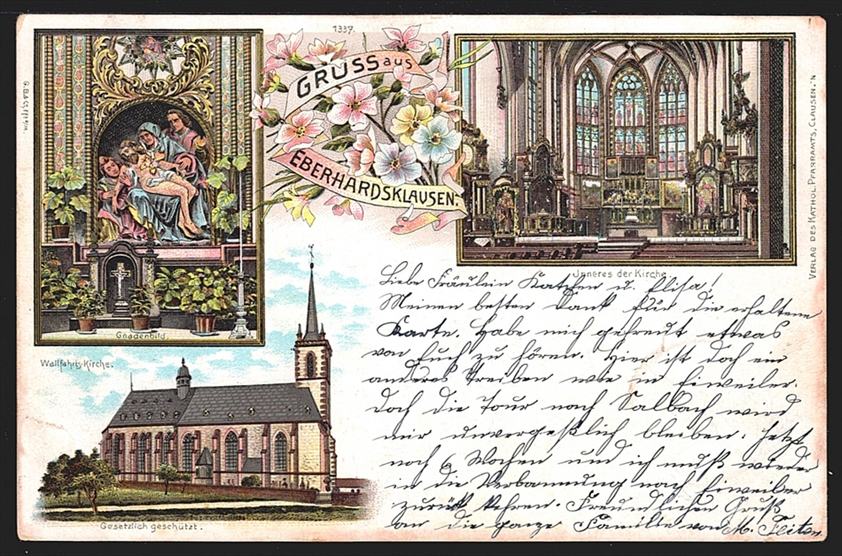 1337.
GRUSS aus
EBERHARDSKLAUSEN.
Gnadenbild.
Wallfahrts-Kirche.
Gesetzlich geschützt.
Inneres der Kirche
VERLAG DES KATHOL. PFARRAMTS, CLAUSEN.
Liebe Fräulein Katchen u. Elisa!
Meinen besten Dank für die erhaltene
Karte. Habe mich gefreut etwas
von Euch zu hören. Hier ist doch ein
anderes Treiben wie in Eiweiler.
Doch die Tour nach Salbach wird
mir unvergeßlich bleiben. Jetzt
noch 6 Wochen und ich muß wieder
in die Verbannung nach Eiweiler
zurück kehren. Freundlichen Gruß
an die ganze Familie von M.